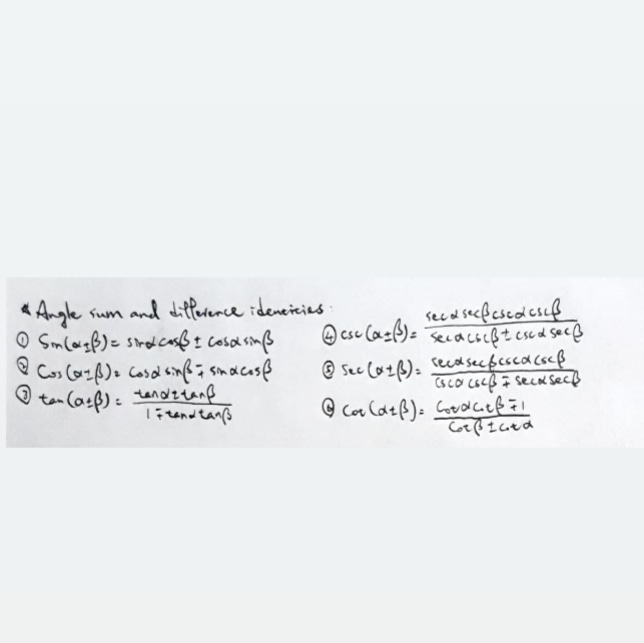 * Angle sum and difference ideneities:
① Sin(α±β)= sinαcosβ ± cosαsinβ
② Cos(α±β)= cosαsinβ ∓ sinαcosβ
③ tan(α±β)= (tanα±tanβ)/(1∓tanαtanβ)
④ csc(α±β)= (secαsecβcscαcscβ)/(secαcscβ±cscαsecβ)
⑤ sec(α±β)= (secαsecβcscαcscβ)/(cscαcscβ∓secαsecβ)
⑥ cot(α±β)= (cotαcotβ∓1)/(cotβ±cotα)